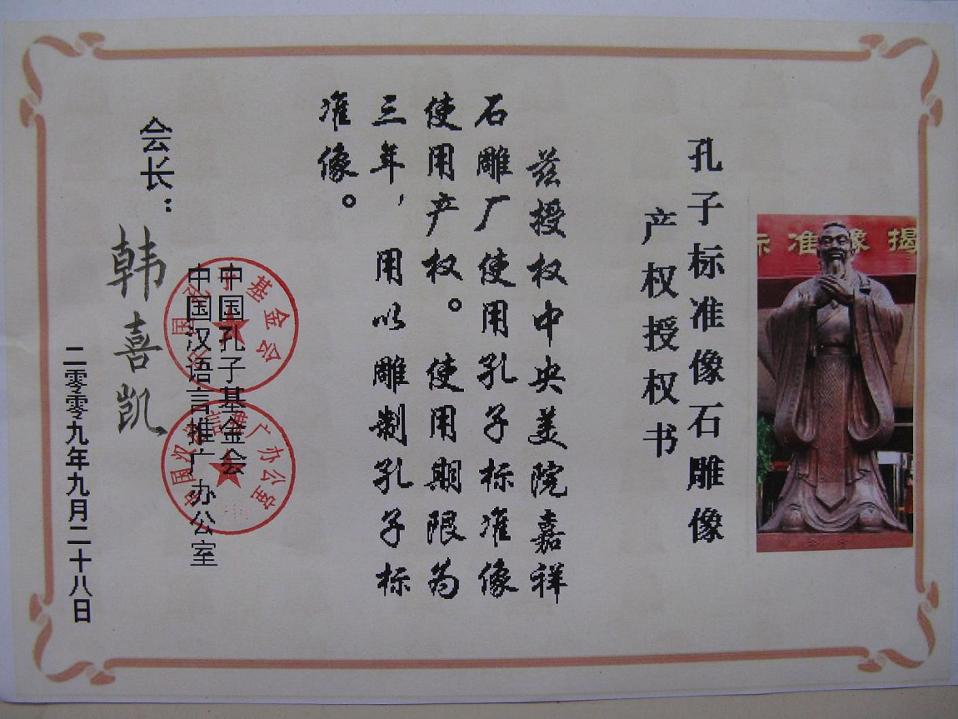 孔子标准像石雕像
产权授权书
兹授权中央美院嘉祥
石雕厂使用孔子标准像
使用产权。使用期限为
三年,用以雕制孔子标
准像。
中国孔子基金会
中国汉语言推广办公室
会长:韩喜凯
二零零九年九月二十八日
标准像揭
基金会
广办公室